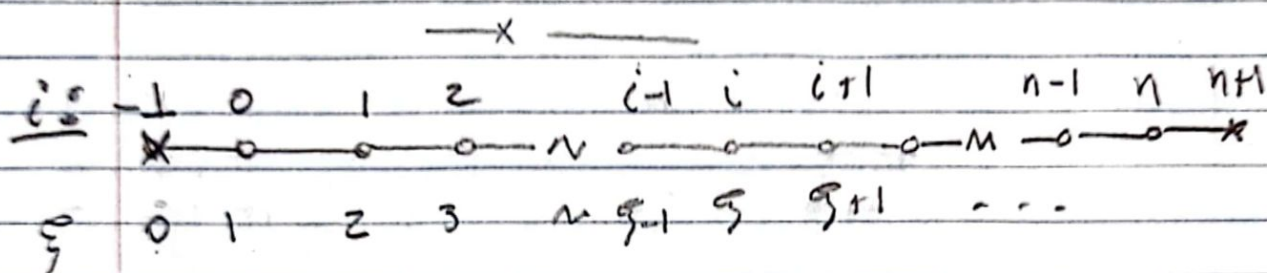 i: -1 0 1 2 i-1 i i+1 n-1 n n+1
ξ 0 1 2 3 ~ ξ-1 ξ ξ+1 ...